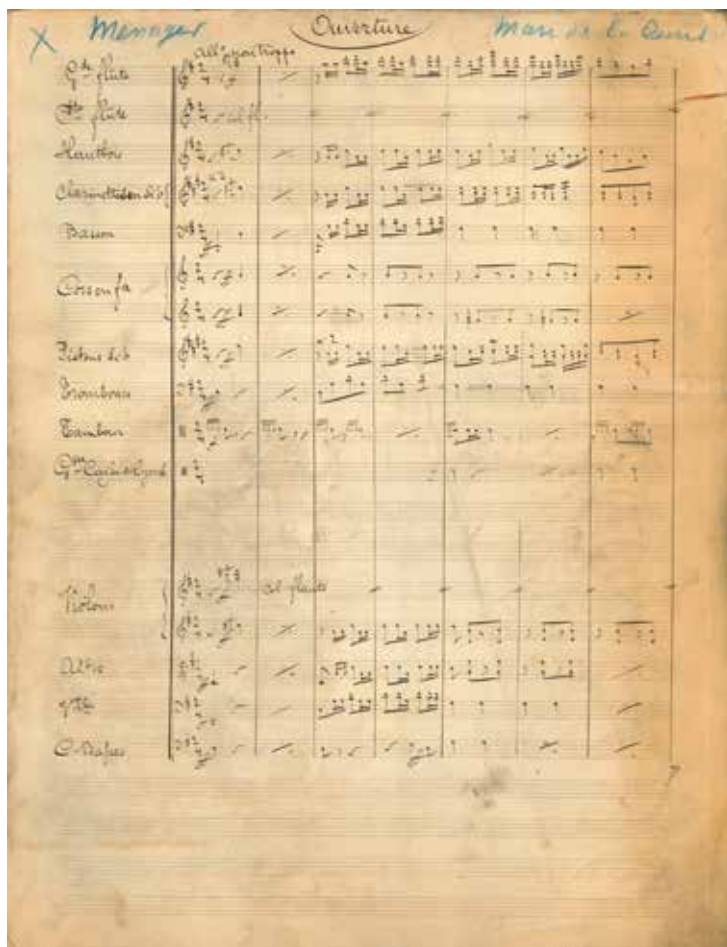 X Menager Ouverture Mari de la Reine
All° non troppo
Gde flute
Pte flute col fl.
Hautbois
Clarinettes en sib
Basson
Cors en fa
Pistons sib
Trombones
Tambour
Gde Caisse
Violons col flauto
Altos
Vlles
C. Basses